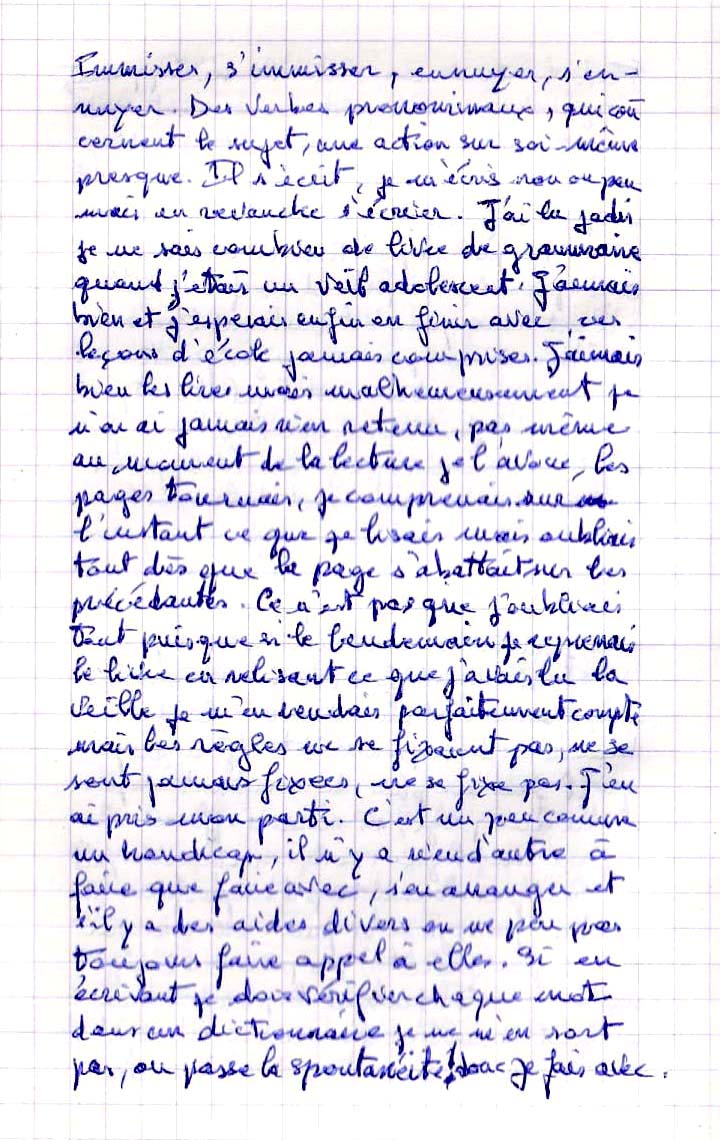 Immisser, s'immisser, ennuyer, s'en-
nuyer. Des verbes pronominaux, qui con
cernent le sujet, une action sur soi-même
presque. Il s'écrit, je m'écris non ou peu
mais en revanche s'écrier. J'ai lu jadis
je ne sais combien de livre de grammaire
quand j'étais un vieil adolescent. J'aimais
bien et j'esperais enfin en finir avec ces
leçons d'école jamais comprises. J'aimais
bien les livres mais malheureusement je
n'en ai jamais rien retenu, pas même
au moment de la lecture je l'avoue, les
pages tournais, je comprenais sur
l'instant ce que je lisais mais oubliais
tout dès que la page s'abattait sur les
précédantes. Ce n'est pas que j'oubliais
tout puisque si le lendemain je reprenais
le livre en relisant ce que j'avais lu la
veille je m'en rendais parfaitement compte
mais les règles ne se fixaient pas, ne se
sont jamais fixées, ne se fixe pas. J'en
ai pris mon parti. C'est un peu comme
un handicap, il n'y a rien d'autre à
faire que faire avec, s'en arranger et
s'il y a des aides divers on ne peu pas
toujours faire appel à elles. Si en
écrivant je dois vérifier chaque mot
dans un dictionnaire je ne m'en sort
pas, ou passe la spontanéité, donc je fais avec.